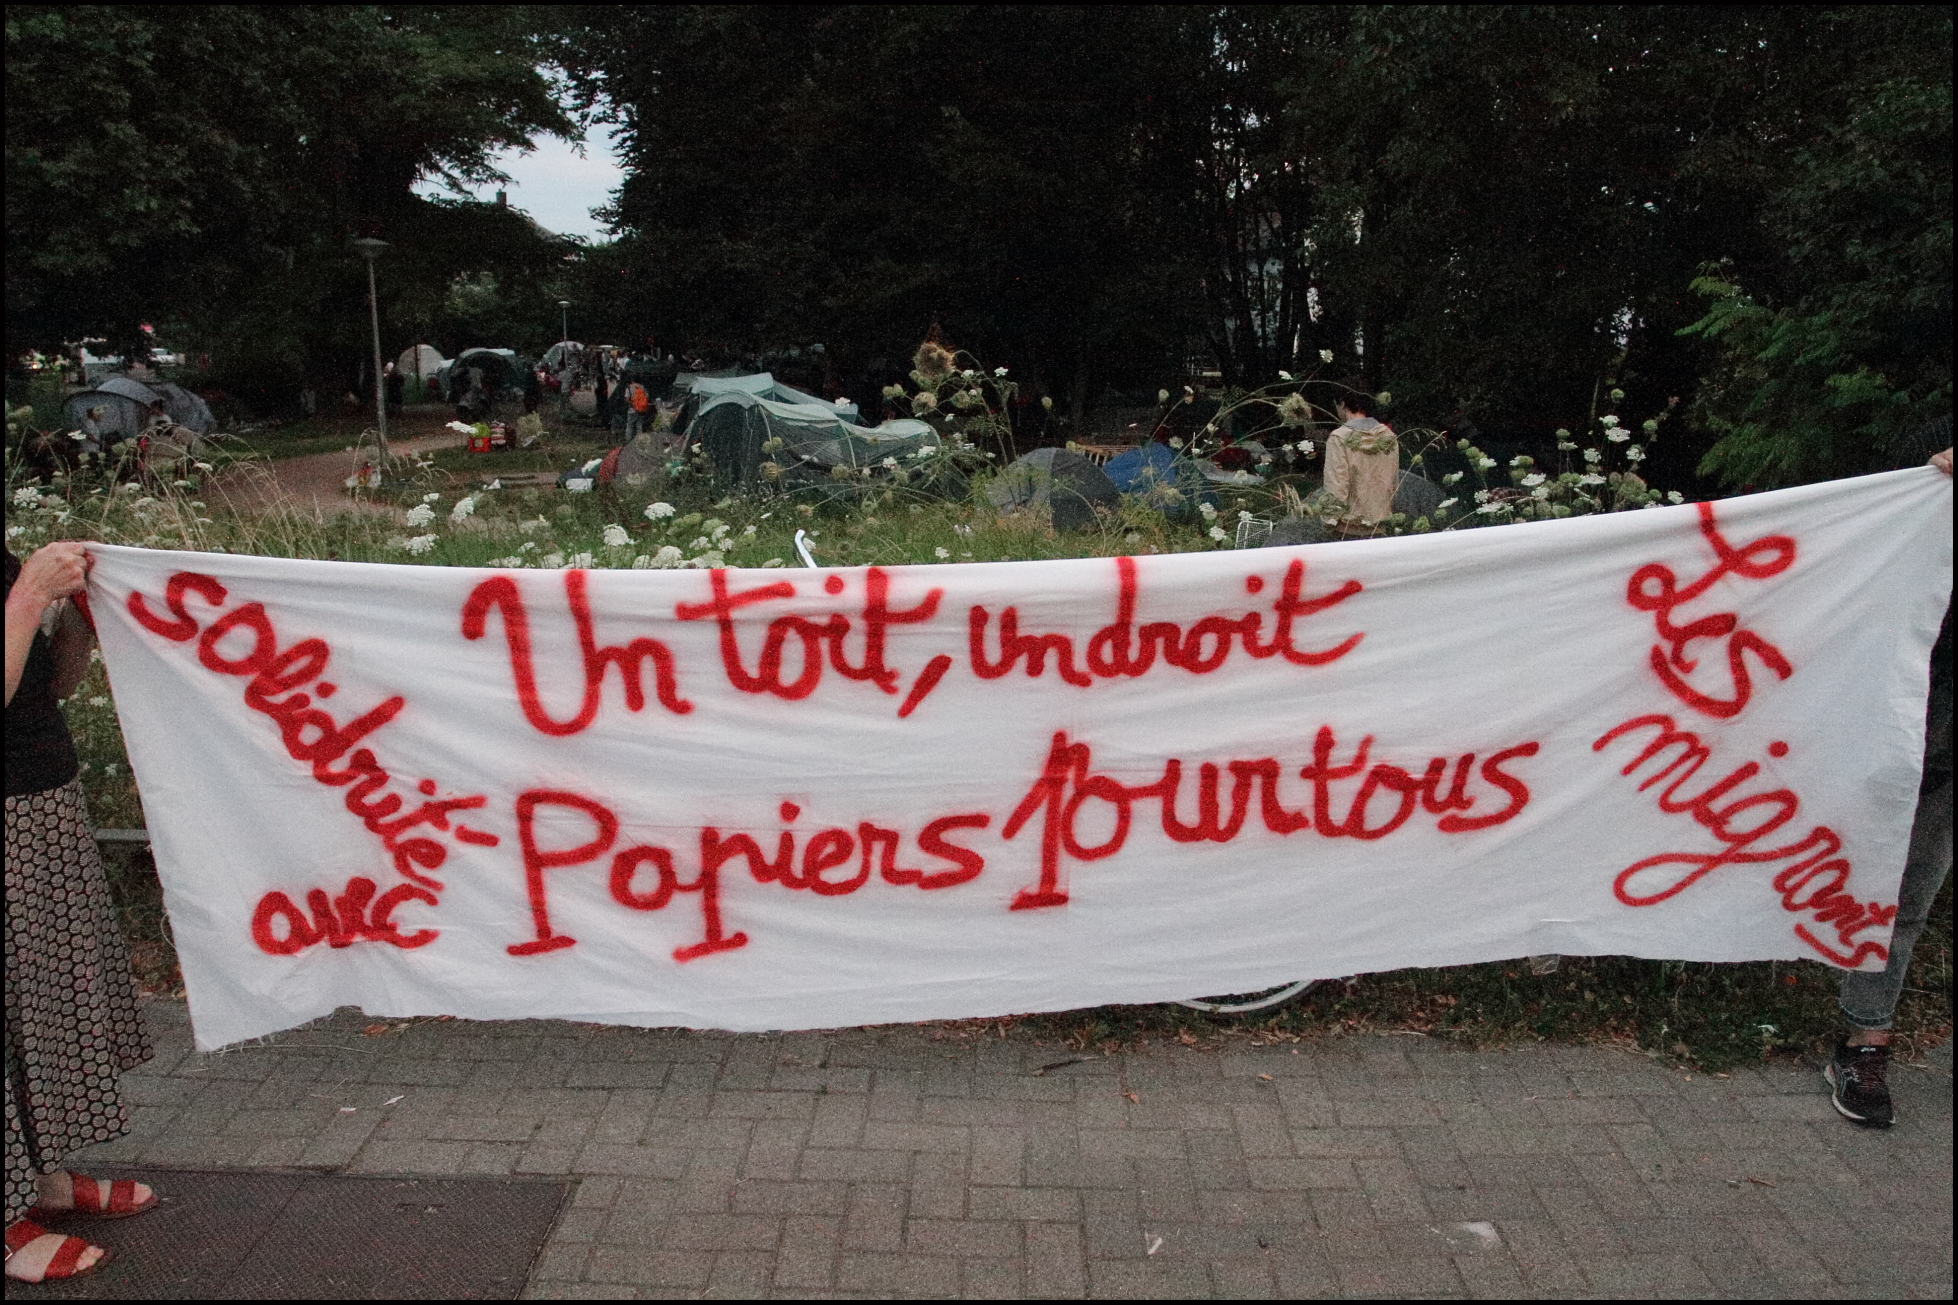 solidruité
avec
Un toit, un droit
Papiers pour tous
Les
migrants